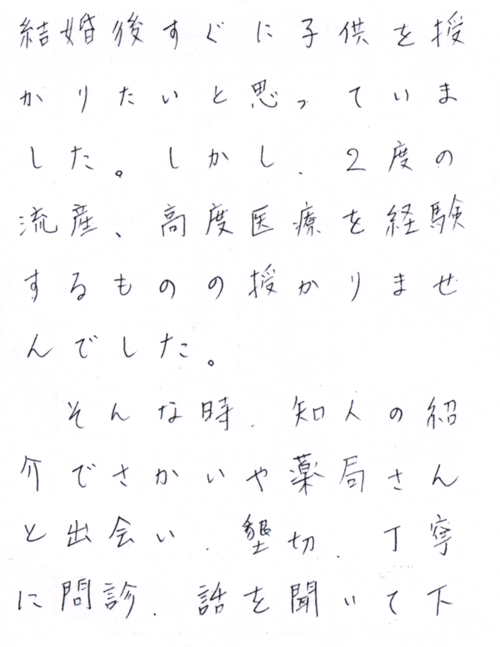 結婚後すぐに子供を授
かりたいと思っていま
した。しかし、2度の
流産、高度医療を経験
するものの授かりませ
んでした。
そんな時、知人の紹
介でさかいや薬局さん
と出会い、墾切、丁寧
に問診、話を聞いて下